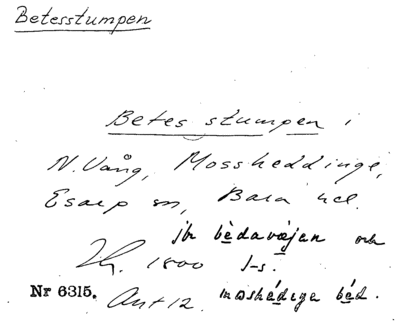 Betesstumpen
Betes stumpen i
N. Vång, Mossheddinge,
Esarp sn, Bara hd.
jfr bèdavæjen och
1800 1-s.
Nr 6315. Ant 12. moshédige béd.